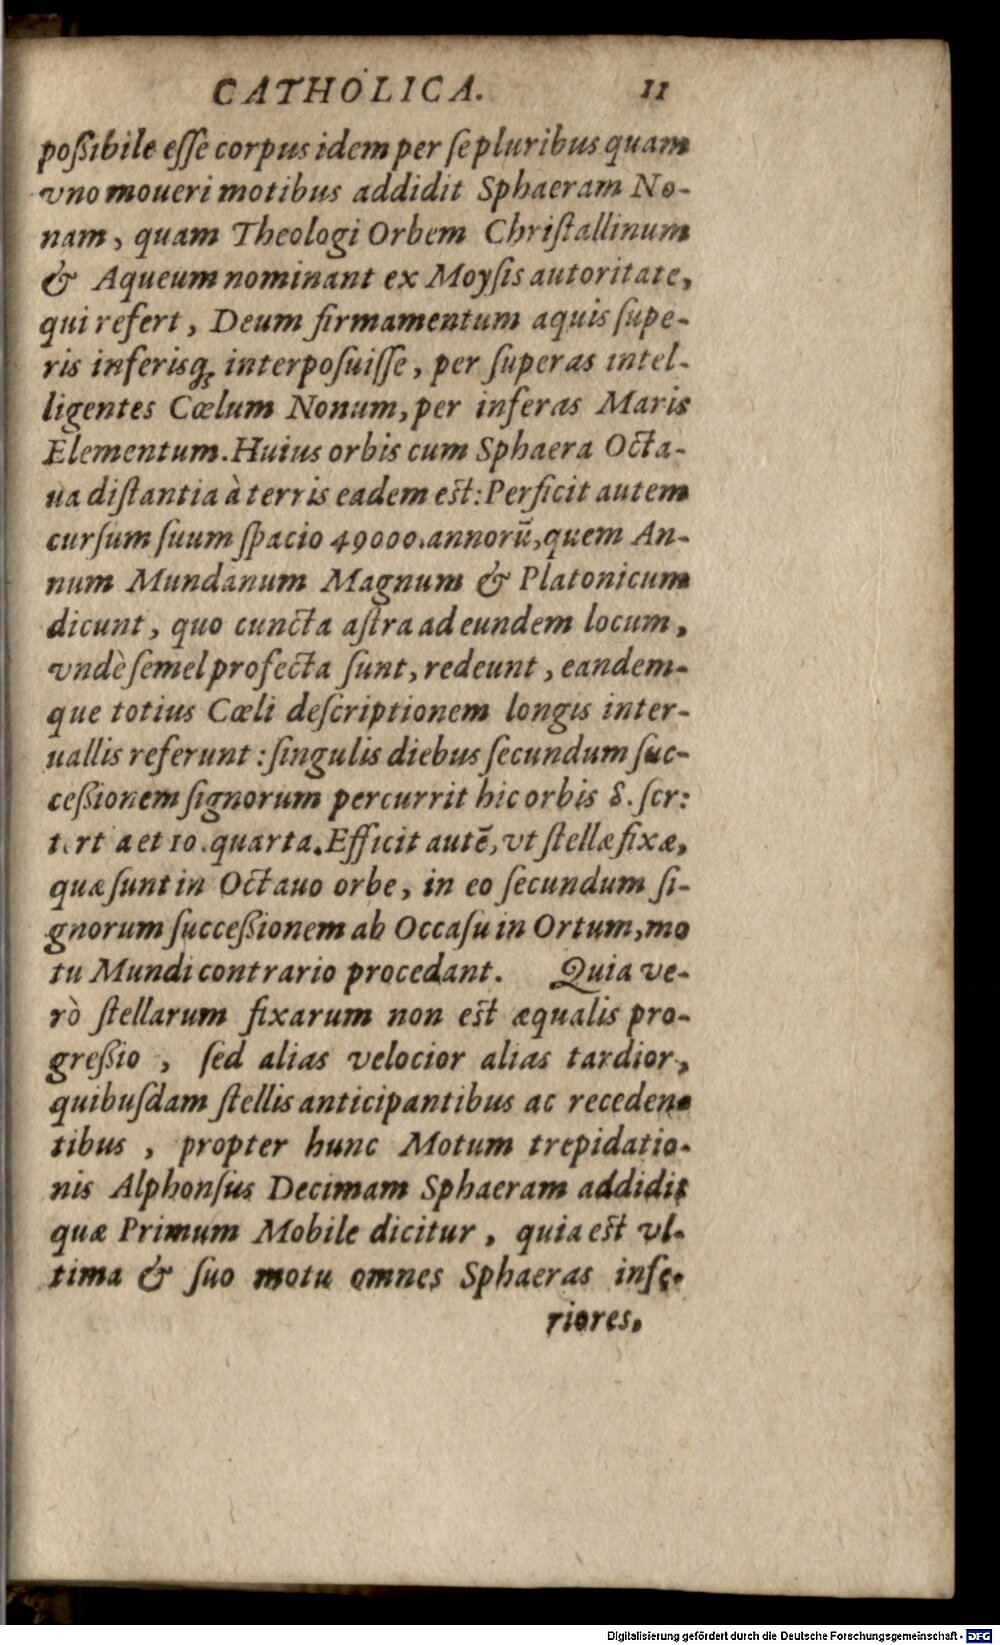 CATHOLICA. 11
poßibile eſſe corpus idem per ſe pluribus quam
vno moueri motibus addidit Sphaeram No-
nam, quam Theologi Orbem Chriſtallinum
& Aqueum nominant ex Moyſis autoritate,
qui refert, Deum firmamentum aquis ſupe-
ris inferisq; interpoſuiſſe, per ſuperas intel-
ligentes Cœlum Nonum, per inferas Maris
Elementum. Huius orbis cum Sphaera Octa-
ua diſtantia à terris eadem eſt: Perficit autem
curſum ſuum ſpacio 49000. annorū, quem An-
num Mundanum Magnum & Platonicum
dicunt, quo cuncta aſtra ad eundem locum,
vndè ſemel profecta ſunt, redeunt, eandem-
que totius Cœli deſcriptionem longis inter-
uallis referunt: ſingulis diebus ſecundum ſuc-
ceßionem ſignorum percurrit hic orbis 8. ſcr:
tert a et 10. quarta. Efficit autē, vt ſtellæ fixæ,
quæ ſunt in Octauo orbe, in eo ſecundum ſi-
gnorum ſucceßionem ab Occaſu in Ortum, mo
tu Mundi contrario procedant. Quia ve-
rò ſtellarum fixarum non eſt æqualis pro-
greßio, ſed alias velocior alias tardior,
quibuſdam ſtellis anticipantibus ac receden-
tibus, propter hunc Motum trepidatio-
nis Alphonſus Decimam Sphaeram addidit
quæ Primum Mobile dicitur, quia eſt vl-
tima & ſuo motu omnes Sphaeras infe-
riores.
Digitalisierung gefördert durch die Deutsche Forschungsgemeinschaft - DFG